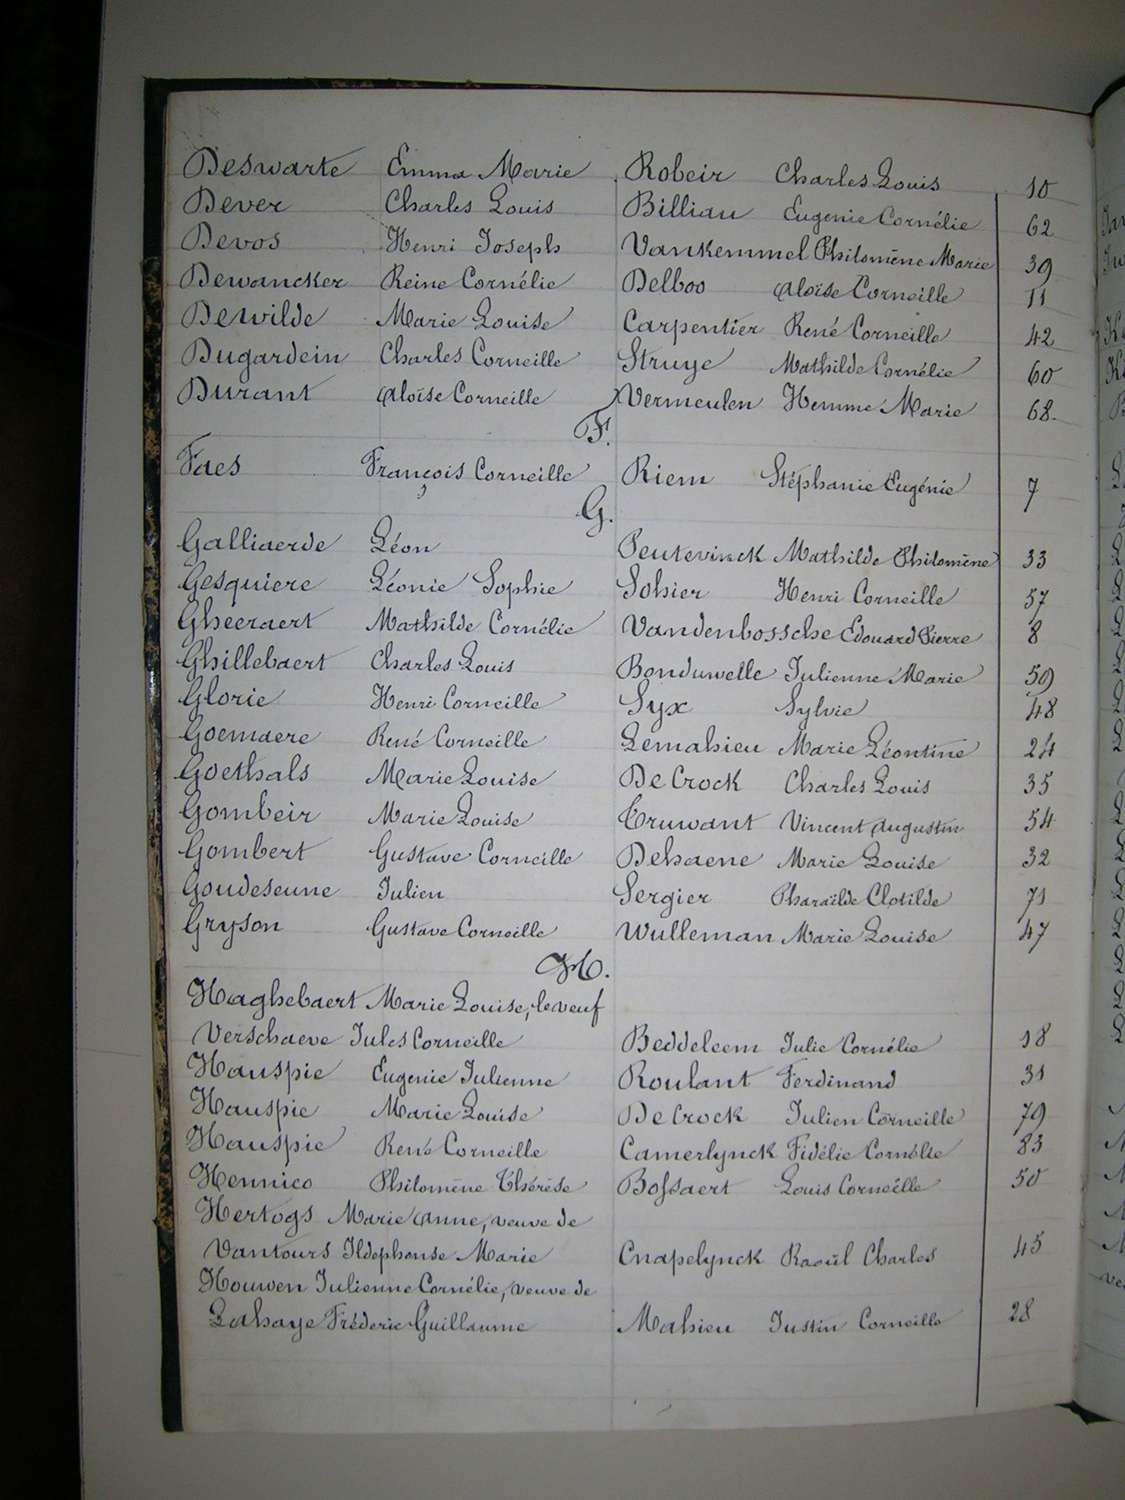 Deswarte Emma Marie Robeir Charles Louis 10
Dever Charles Louis Billiau Eugenie Cornélie 62
Devos Henri Joseph Vankemmel Philomène Marie 39
Dewancker Reine Cornélie Delboo Aloïse Corneille 11
Dewilde Marie Louise Carpentier René Corneille 42
Dugardein Charles Corneille Struye Mathilde Cornélie 60
Durant Aloïse Corneille Vermeulen Hemme Marie 68
F.
Faes François Corneille Riem Stéphanie Eugénie 7
G.
Galliaerde Léon Peutevinck Mathilde Philomène 33
Gesquiere Léonie Sophie Sohier Henri Corneille 57
Gheeraert Mathilde Cornélie Vandenbossche Edouard Pierre 8
Ghillebaert Charles Louis Bonduwelle Julienne Marie 59
Glorie Henri Corneille Syx Sylvie 48
Goemaere René Corneille Lemahieu Marie Léontine 24
Goethals Marie Louise DeCrock Charles Louis 35
Gombeir Marie Louise Truwant Vincent Augustin 54
Gombert Gustave Corneille Dehaene Marie Louise 32
Goudeseune Julien Sergier Pharaïlde Clotilde 71
Gryson Gustave Corneille Wulleman Marie Louise 47
H.
Haghebaert Marie Louise, le veuf
Verschaeve Jules Corneille Beddeleem Julie Cornélie 18
Hauspie Eugenie Julienne Roulant Ferdinand 31
Hauspie Marie Louise DeCrock Julien Corneille 79
Hauspie René Corneille Camerlynck Fidélie Cornélie 83
Hennico Philomène Thérèse Bossaert Louis Corneille 50
Hertogs Marie Anne, veuve de
Vantours Ildephonse Marie Cnapelynck Raoul Charles 45
Houwen Julienne Cornélie, veuve de
Lahaye Fréderic Guillaume Mahieu Justin Corneille 28